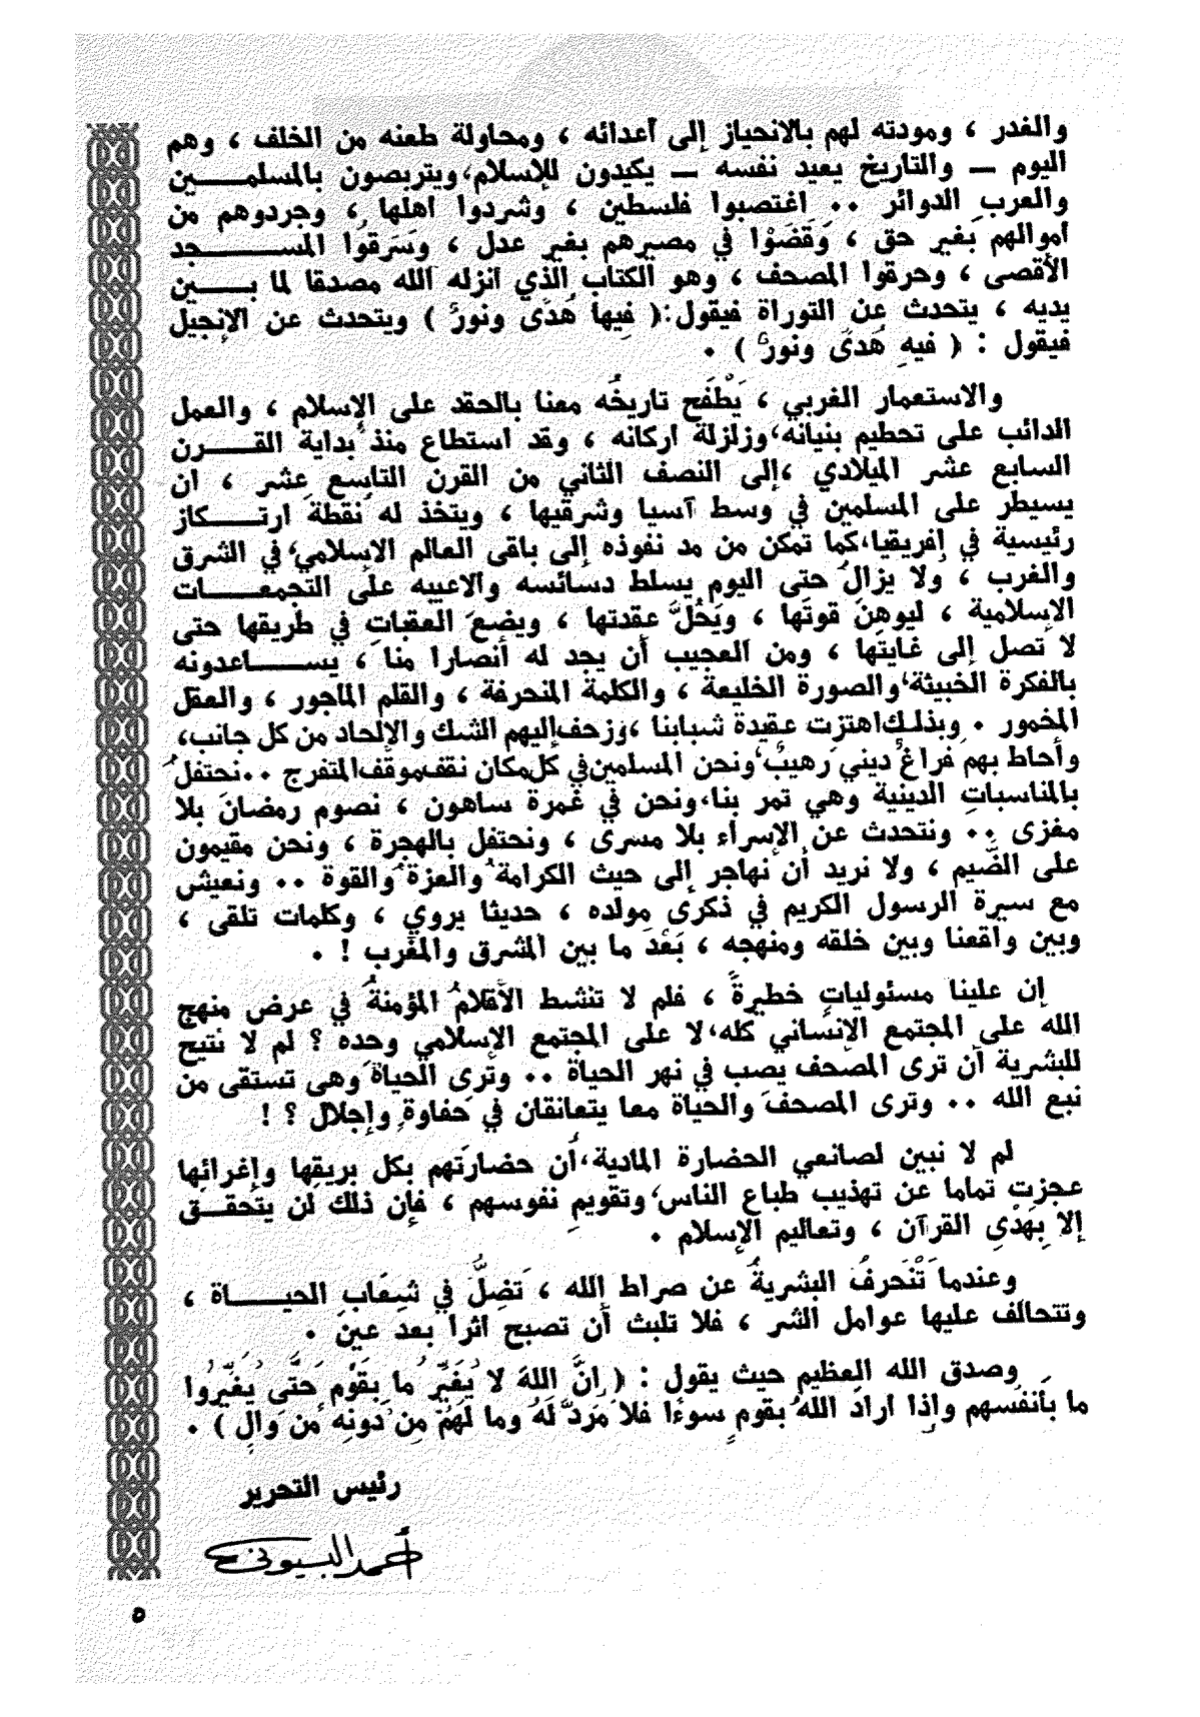 والغدر ، ومودته لهم بالانحياز إلى أعدائه ، ومحاولة طعنه من الخلف ، وهم
اليوم — والتاريخ يعيد نفسه — يكيدون للإسلام، ويتربصون بالمسلمين
والعرب الدوائر .. اغتصبوا فلسطين ، وشردوا أهلها ، وجردوهم من
أموالهم بغير حق ، وَقَضَوْا في مصيرهم بغير عدل ، وسَرَقُوا المسجد
الأقصى ، وحرقوا المصحف ، وهو الكتاب الذي أنزله الله مصدقا لما بين
يديه ، يتحدث عن التوراة فيقول: ( فيها هُدًى ونورٌ ) ويتحدث عن الإنجيل
فيقول : ( فيهِ هُدًى ونورٌ ) .
والاستعمار الغربي ، يَطْفَح تاريخُه معنا بالحقد على الإسلام ، والعمل
الدائب على تحطيم بنيانه، وزلزلة أركانه ، وقد استطاع منذ بداية القرن
السابع عشر الميلادي ،إلى النصف الثاني من القرن التاسع عشر ، أن
يسيطر على المسلمين في وسط آسيا وشرقيها ، ويتخذ له نقطة ارتكاز
رئيسية في إفريقيا، كما تمكن من مد نفوذه إلى باقى العالم الإسلامي، في الشرق
والغرب ، ولا يزالُ حتى اليوم يسلط دسائسه وألاعيبه على التجمعات
الإسلامية ، ليوهِنَ قوتَها ، ويَحُلَّ عقدتها ، ويضعَ العقباتِ في طريقها حتى
لا تصل إلى غايتها ، ومن العجيب أن يجد له أنصارا منا ، يساعدونه
بالفكرة الخبيثة، والصورة الخليعة ، والكلمة المنحرفة ، والقلم المأجور ، والعقل
المخمور . وبذلك اهتزت عقيدة شبابنا ،وزحف إليهم الشك والإلحاد من كل جانب،
وأحاط بهم فراغٌ ديني رهيبٌ، ونحن المسلمين في كل مكان نقف موقف المتفرج .. نحتفلُ
بالمناسباتِ الدينية وهي تمر بنا، ونحن في غمرة ساهون ، نصوم رمضانَ بلا
مغزى .. ونتحدث عن الإسراء بلا مسرى ، ونحتفل بالهجرة ، ونحن مقيمون
على الضَّيم ، ولا نريد أن نهاجر إلى حيث الكرامةُ والعزةُ والقوة .. ونعيش
مع سيرة الرسول الكريم في ذكرى مولده ، حديثا يروي ، وكلمات تلقى ،
وبين واقعنا وبين خلقه ومنهجه ، بَعْدَ ما بين المشرق والمغرب ! .
إن علينا مسئولياتٍ خطيرةً ، فلم لا تنشط الأقلامُ المؤمنةُ في عرض منهج
الله على المجتمع الإنساني كله، لا على المجتمع الإسلامي وحده ؟ لم لا نتيح
للبشرية أن ترى المصحف يصب في نهر الحياة .. وترى الحياةَ وهى تستقى من
نبع الله .. وترى المصحفَ والحياة معا يتعانقان في حفاوةٍ وإجلال ؟ !
لم لا نبين لصانعي الحضارة المادية، أن حضارتهم بكل بريقها وإغرائها
عجزت تماما عن تهذيب طباع الناس، وتقويمِ نفوسهم ، فإن ذلك لن يتحقق
إلا بِهَدْيِ القرآن ، وتعاليم الإسلام .
وعندما تَنْحَرفُ البشريةُ عن صراط الله ، تَضِلُّ في شِعَابِ الحياة ،
وتتحالف عليها عوامل الشر ، فلا تلبث أن تصبح أثرا بعد عين .
وصدق الله العظيم حيث يقول : ( إِنَّ اللهَ لا يُغَيِّرُ مَا بِقَوْمٍ حَتَّى يُغَيِّرُوا
ما بأَنفُسهم وإذا أرادَ اللهُ بقومٍ سوءًا فلا مَرَدَّ لَهُ وما لَهُمْ مِنْ دُونِهِ مِنْ وَالٍ ) .
رئيس التحرير
أحمد البسيونى
٥